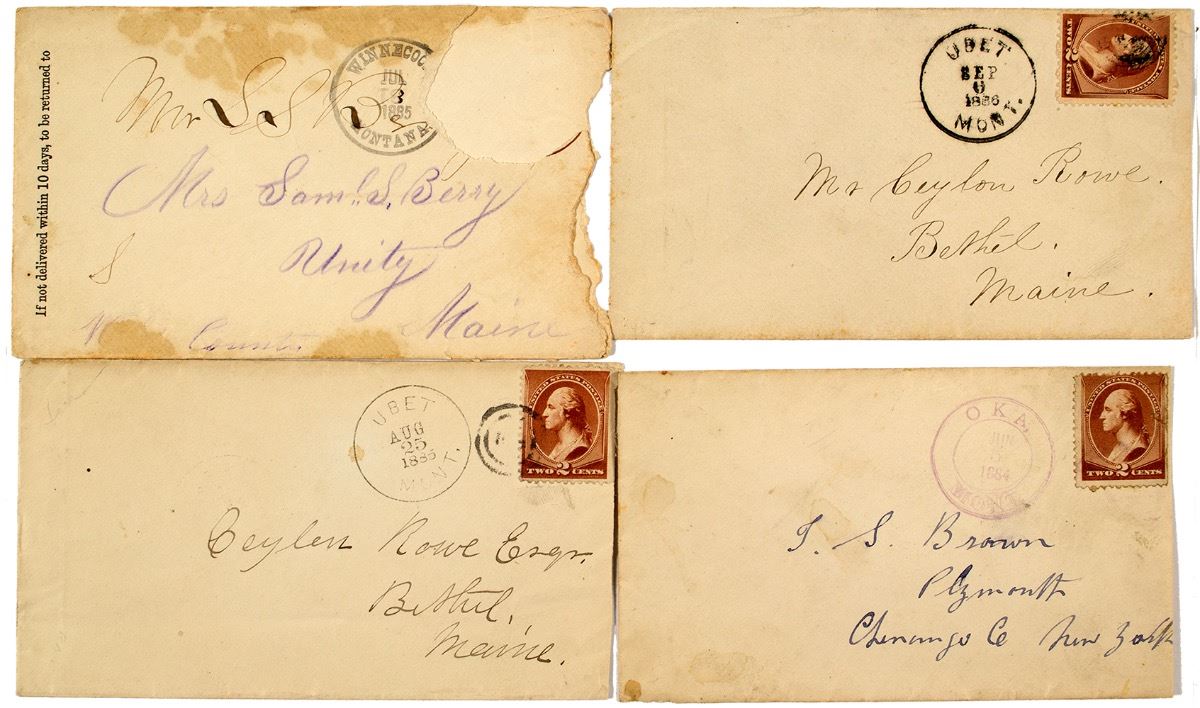 If not delivered within 10 days, to be returned to
WINNECOO
JUL
13
1885
MONTANA
Mr S S
Mrs Saml. S. Berry
Unity
S
County Maine
UBET
SEP
6
1886
MONT.
TWO 2 CENTS
Mr Ceylon Rowe.
Bethel.
Maine.
UBET
AUG
25
1885
MONT.
UNITED STATES POSTAGE
TWO 2 CENTS
Ceylon Rowe Esqr.
Bethel.
Maine.
OKA
1884
MONT.
UNITED STATES POSTAGE
TWO 2 CENTS
T. S. Brown
Plymouth
Chenango Co New York